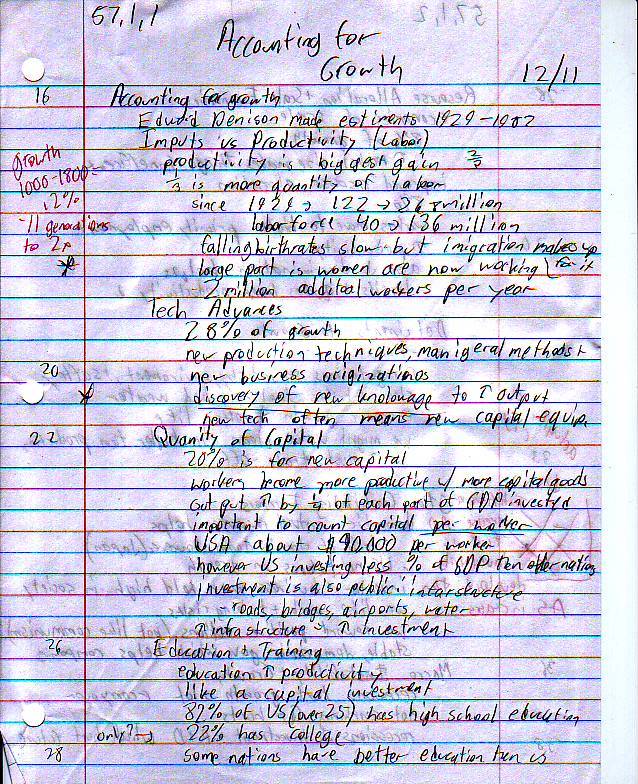 57,1,1
Accounting for
Growth
12/11
16 Accounting for growth
Edward Denison made estiments 1929-1982
Imputs vs Productivity (Labor)
productivity is biggest gain 2/3
1/3 is more quantity of labor
since 1929 → 122 →
labor force 40 → 136 million
falling birthrates slow but imigration makes up for it
large part is women are now working
~2 million additoal workers per year
growth
1000-1800=
.2%
~11 generations
to 2x
Tech Advances
28% of growth
new production techniques, manigeral methods +
20 new business originizations
discovery of new knolowage to ↑ output
new tech often means new capital equip.
22 Quanity of Capital
20% is for new capital
workers become more productive w/ more capital goods
out put ↑ by 1/4 of each part of GDP investyd
important to count capital per worker
USA about $90,000 per worker
however US investing less % of GDP ten other nations
investment is also public: infarstructure
- roads, bridges, airports, water
↑ infrastructure → ↑ investment
26 Education & Training
education ↑ productivity
like a capital investment
82% of US (over 25) has high school education
only? → 22% has college
28 some nations have better education then us